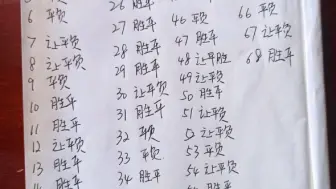 6 平负
7 让平负
8 让平负
9 平负
10 胜平
11 胜平
12 让平负
13 胜平
26 胜平
27 胜平
28 胜平
29 胜平
30 让平负
31 胜平
32 平负
33 平负
34 胜平
46 平负
47 胜平
48 让平胜
49 让平负
50 胜平
51 让平负
52 让平负
53 平负
54 让平负
66 平负
67 让平负
68 胜平